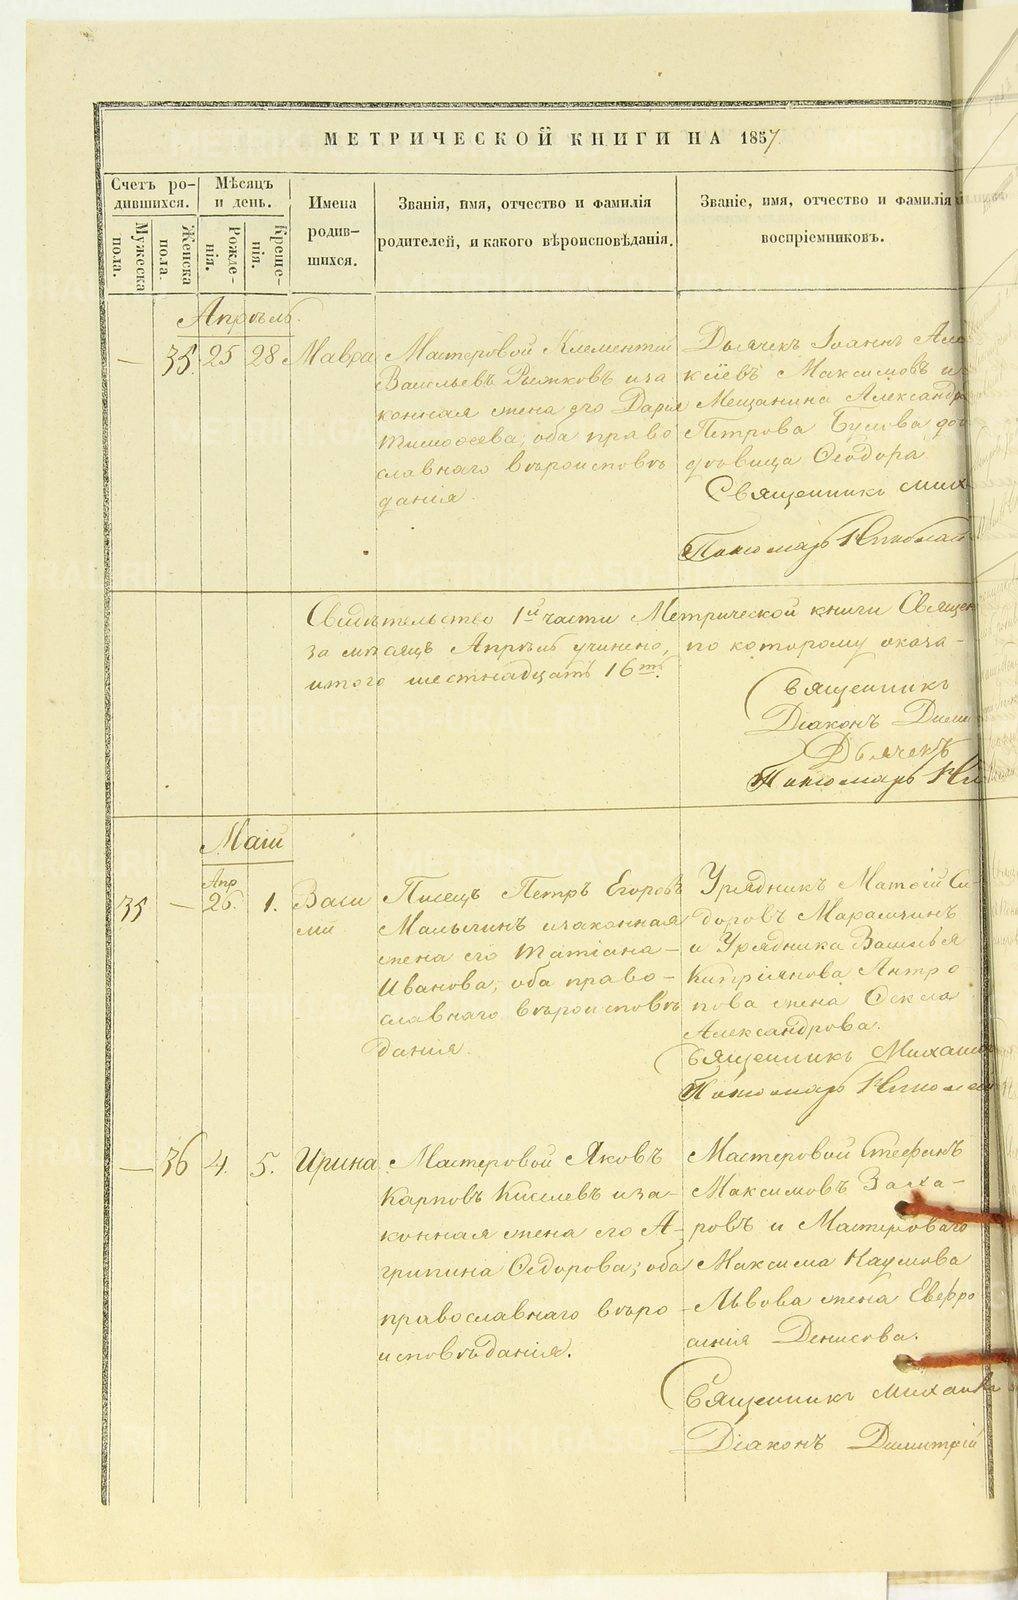 МЕТРИЧЕСКОЙ КНИГИ НА 1857
Счетъ ро-
дившихся.
Мужеска
пола.
Женска
пола.
Мѣсяцъ
и день.
Рожде-
нія.
Креще-
нія.
Имена
родив-
шихся.
Званія, имя, отчество и фамилія
родителей, и какого вѣроисповѣданія.
Званіе, имя, отчество и фамилія
воспріемниковъ.
Апрѣль.
— 35. 25 28 Мавра
Мастеровой Клементій
Васильевъ Рыжковъ и за
конная жена его Дарья
Тимофеева; оба право
славнаго вѣроисповѣ
данія.
Дьячекъ Іоаннъ
Максимовъ и
Мещанина Александра
Петрова Булова до
дѣвица Ѳеодора
Священникъ Мих
Пономарь Николай
Свидѣтельство 1й части Метрической книги Священ
за мѣсяцъ Апрѣль учинено, по которому оказа-
итого шестнадцать 16ть.
Священникъ
Діаконъ Дими
Дьячекъ
Пономарь Ни
Маій
35 — Апр 26. 1. Васи
лій
Писецъ Петръ Егоровъ
Малыгинъ и законная
жена его Татіана
Иванова; оба право-
славнаго вѣроисповѣ
данія.
Урядникъ Матѳій Си-
доровъ
и Урядника Василья
Кипріянова Антро
пова жена Ѳекла
Александрова.
Священникъ Михаилъ
Пономарь Николай
— 36 4. 5. Ирина
Мастеровой Яковъ
Карповъ Киселевъ и за-
конная жена его А-
грипина Ѳедорова; оба
православнаго вѣро
исповѣданія.
Мастеровой Стефанъ
Максимовъ Заха-
ровъ и Мастероваго
Максима Наумова
Львова жена Евфро
синія Денисова.
Священникъ Михаилъ
Діаконъ Димитрій